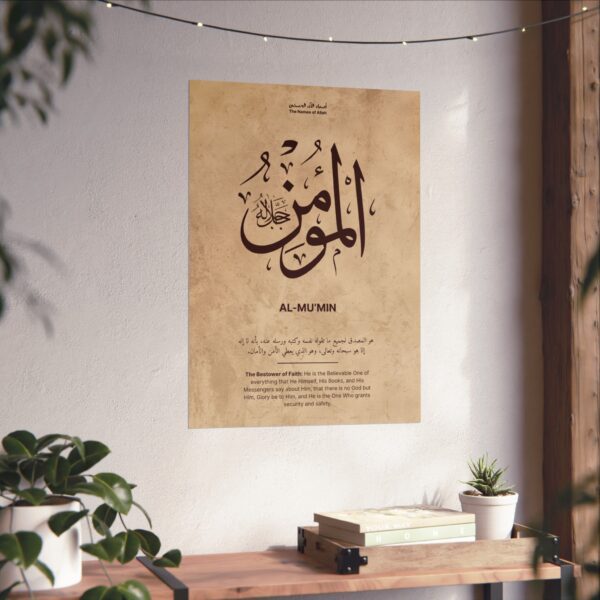 أسماء الله الحسنى
The Names of Allah
المؤمن
جل جلاله
AL-MU'MIN
هو المصدق لجميع ما تقوله نفسه وكتبه ورسله عنه، بأنه لا إله
إلا هو سبحانه وتعالى، وهو الذي يعطي الأمن والأمان.
The Bestower of Faith: He is the Believable One of
everything that He Himself, His Books, and His
Messengers say about Him, that there is no God but
Him, Glory be to Him, and He is the One Who grants
security and safety.
HOME